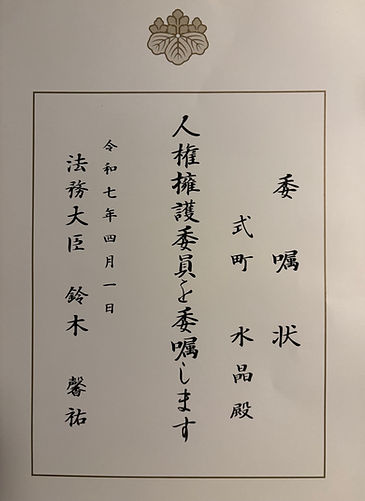 委嘱状
式町 水晶 殿
人権擁護委員を委嘱します
令和七年四月一日
法務大臣 鈴木 馨祐